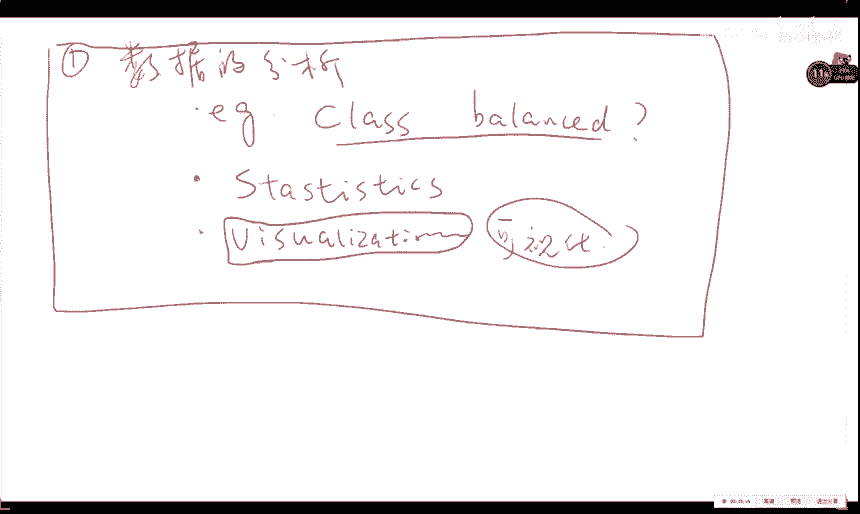 ① 数据的分析
· eg. Class balanced ?
· Stastistics
· Visualization 可视化